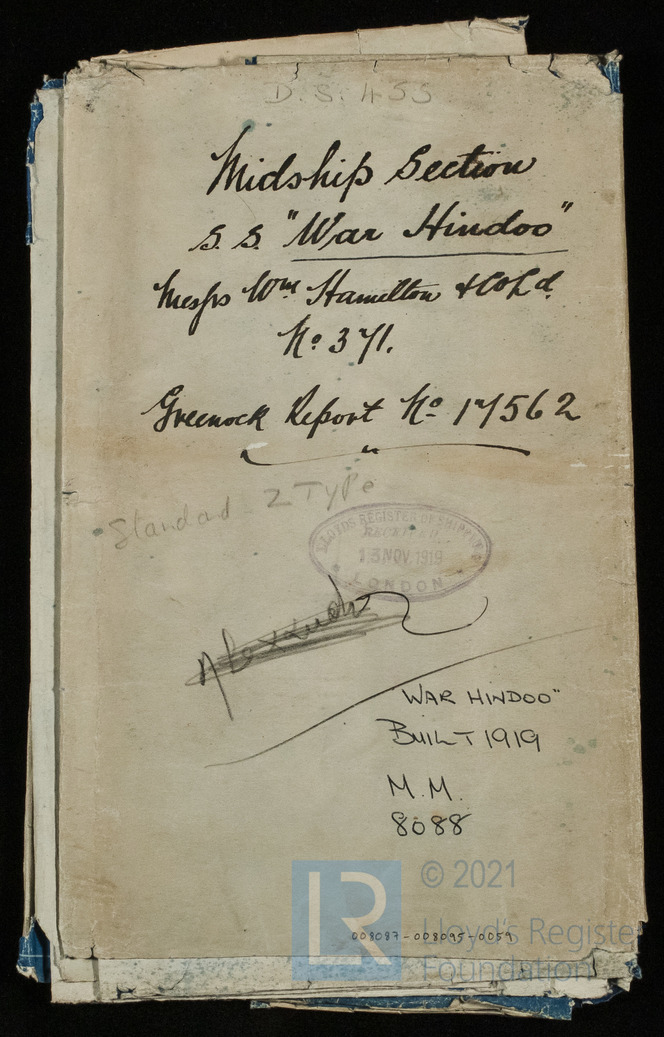 D.S. 455
Midship Section
S.S. "War Hindoo"
Messrs Wm Hamilton & Co Ld.
No 371.
Greenock Report No 17562
Standard Z Type
LLOYDS REGISTER OF SHIPPING
RECEIVED
13 NOV. 1919
LONDON
"WAR HINDOO"
BUILT 1919
M.M.
8088
© 2021
LR
Lloyd's Register
Foundation
008087-008095-0059